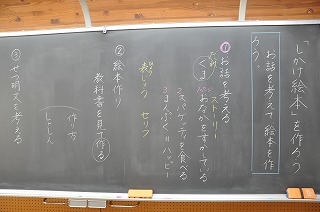 「しかけ絵本」を作ろう
お話を考えて絵本を作
ろう。
① お話を考える
ストーリー
くま
1 おなかをすかしている
2 スパゲッティを食べる
3 まんぷく=ハッピー
② 絵本作り
表じょう セリフ
教科書を見て作る
作り方
しゃしん
③ せつ明文を考える